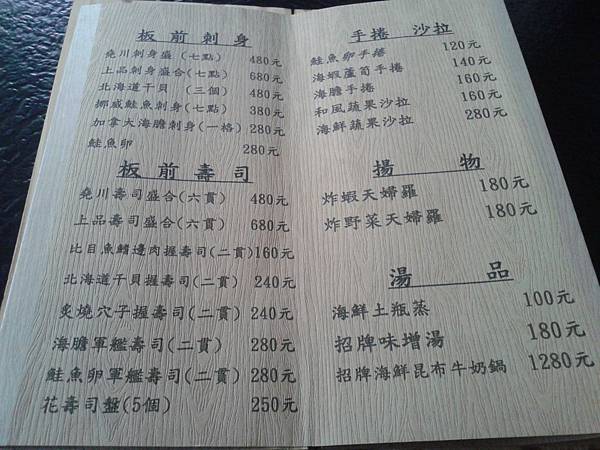 板前刺身
堯川刺身盛(七點) 480元
上品刺身盛合(七點) 680元
北海道干貝 (三個) 480元
挪威鮭魚刺身(七點) 380元
加拿大海膽刺身(一格) 280元
鮭魚卵 280元
板前壽司
堯川壽司盛合(六貫) 480元
上品壽司盛合(六貫) 680元
比目魚鰭邊肉握壽司(二貫) 160元
北海道干貝握壽司(二貫) 240元
炙燒穴子握壽司(二貫) 240元
海膽軍艦壽司(二貫) 280元
鮭魚卵軍艦壽司(二貫) 280元
花壽司盤(5個) 250元
手捲 沙拉
鮭魚卵手捲 120元
海蝦蘆筍手捲 140元
海膽手捲 160元
和風蔬果沙拉 160元
海鮮蔬果沙拉 280元
揚物
炸蝦天婦羅 180元
炸野菜天婦羅 180元
湯品
海鮮土瓶蒸 100元
招牌味增湯 180元
招牌海鮮昆布牛奶鍋 1280元